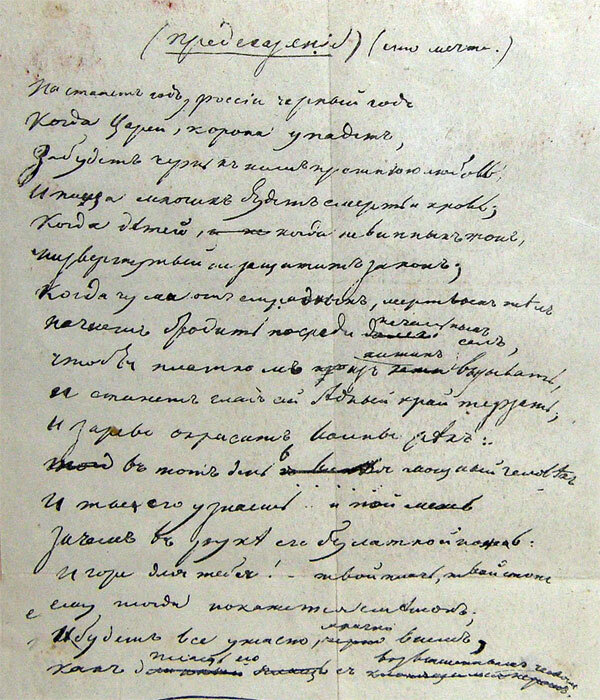 (Предсказаніе) (это мечта.)
Настанетъ годъ, россіи черный годъ
Когда Царей, корона упадетъ,
Забудетъ чернь къ нимъ прежнюю любовь,
И пища многихъ будетъ смерть и кровь;
Когда дѣтей, когда невинныхъ женъ,
низвергнутый не защититъ законъ;
Когда чума отъ смрадныхъ, мертвыхъ тѣлъ
начнетъ бродить посреди печальныхъ селъ,
чтобы платкомъ изъ хижинъ вызывать,
и станетъ гладъ сей бѣдный край терзать;
И зарево окраситъ волны рѣкъ:
въ тотъ день явится мощный человѣкъ
И ты его узнаешь и поймешь
Зачемъ въ рукѣ его булатной ножъ:
И горе для тебя! твой плачь, твой стонъ
ему тогда покажется смѣшонъ;
И будетъ все ужасно, мрачно въ немъ,
какъ плащъ его съ возвышеннымъ челомъ